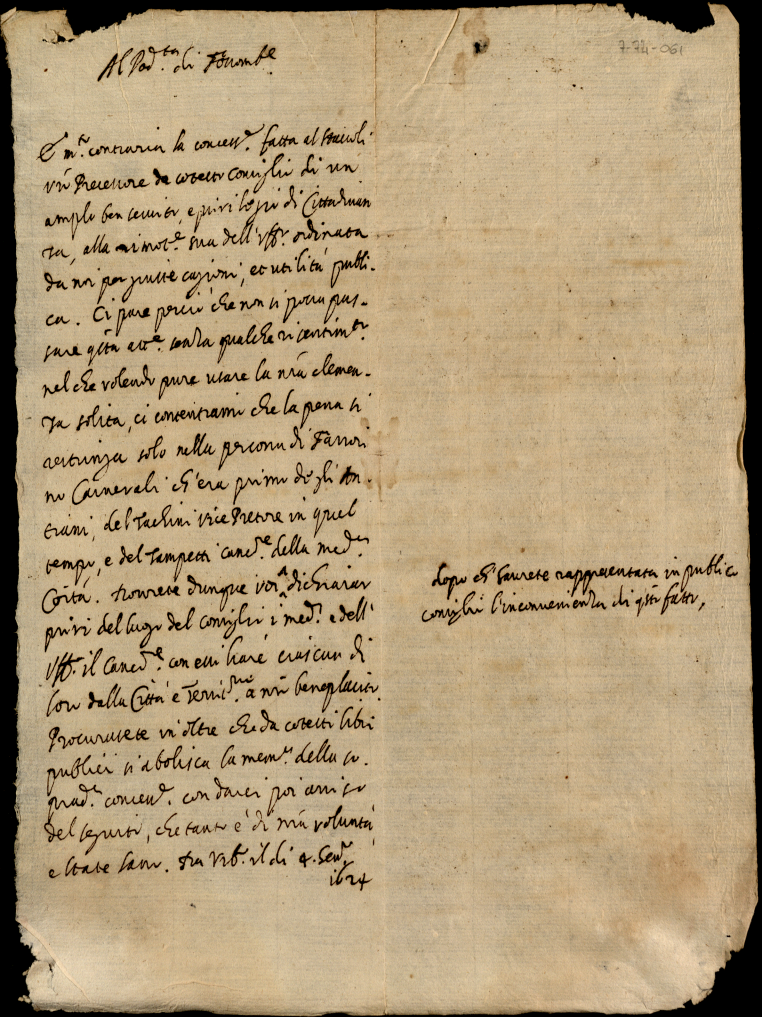 7-74-061
Al Pod.tà di Fossomb.e
È m.to contraria la concess.e fatta al
vro Precessore da cotesto Consiglio di un
amplo ben servito, e privilegio di Cittadinan
za, alla rimot.e sua dell'uff.o ordinata
da noi per giuste cagioni, et utilità publi-
ca. Ci pare perciò che non si possa pas-
sare q̃sta att.e senza qualche risentim.to
nel che volendo pure usare la nr̃a clemen-
za solita, ci contentiamo che la pena si
restringa solo nella persona di
no Carnevali ch'era primo degli An-
tiani, del Vice Pretore in quel
tempo, e del canc.re della med.a
Co͠ità. dunque voi dichiarar
privi del luogo del consiglio i med.i e dell'
uff.o il Canc.re con esiliare ciascun di
loro dalla Città e Territ.o à nr̃o beneplacito
Procurarete in oltre che da cotesti libri
publici si abolisca la mem.a della so-
prad.a concess.e con darci poi avviso
del seguito, che tanto è di nr̃a voluntà
e state sano. Urb.o il dì 4.
1624
dopo ch'haurete rappresentata in publico
consiglio l'inconvenienza di q̃sto fatto,